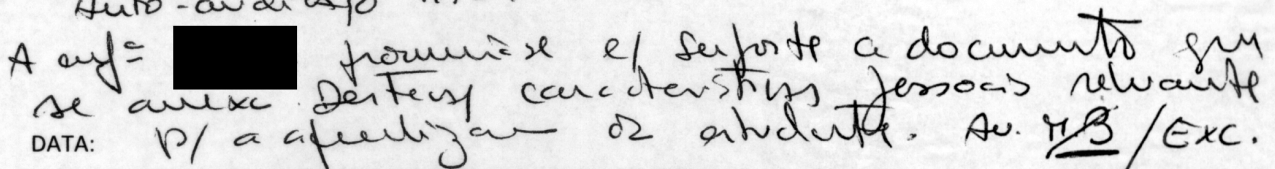 Auto-avaliação
A enfª pronuncia-se c/ suporte a documento que
se anexa. Destacou características pessoais relevante
DATA: p/ a aprendizagem da estudante. Av. MB / Exc.